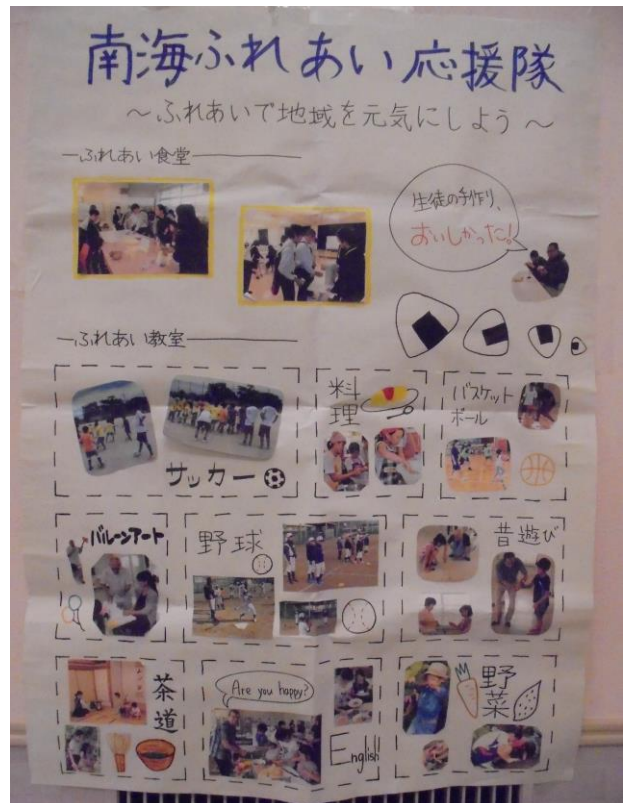 南海ふれあい応援隊
～ふれあいで地域を元気にしよう～
ふれあい食堂
生徒の手作り、
おいしかった!
ふれあい教室
サッカー
料理
バスケット
ボール
バルーンアート
野球
昔遊び
茶道
Are you happy?
English
野菜